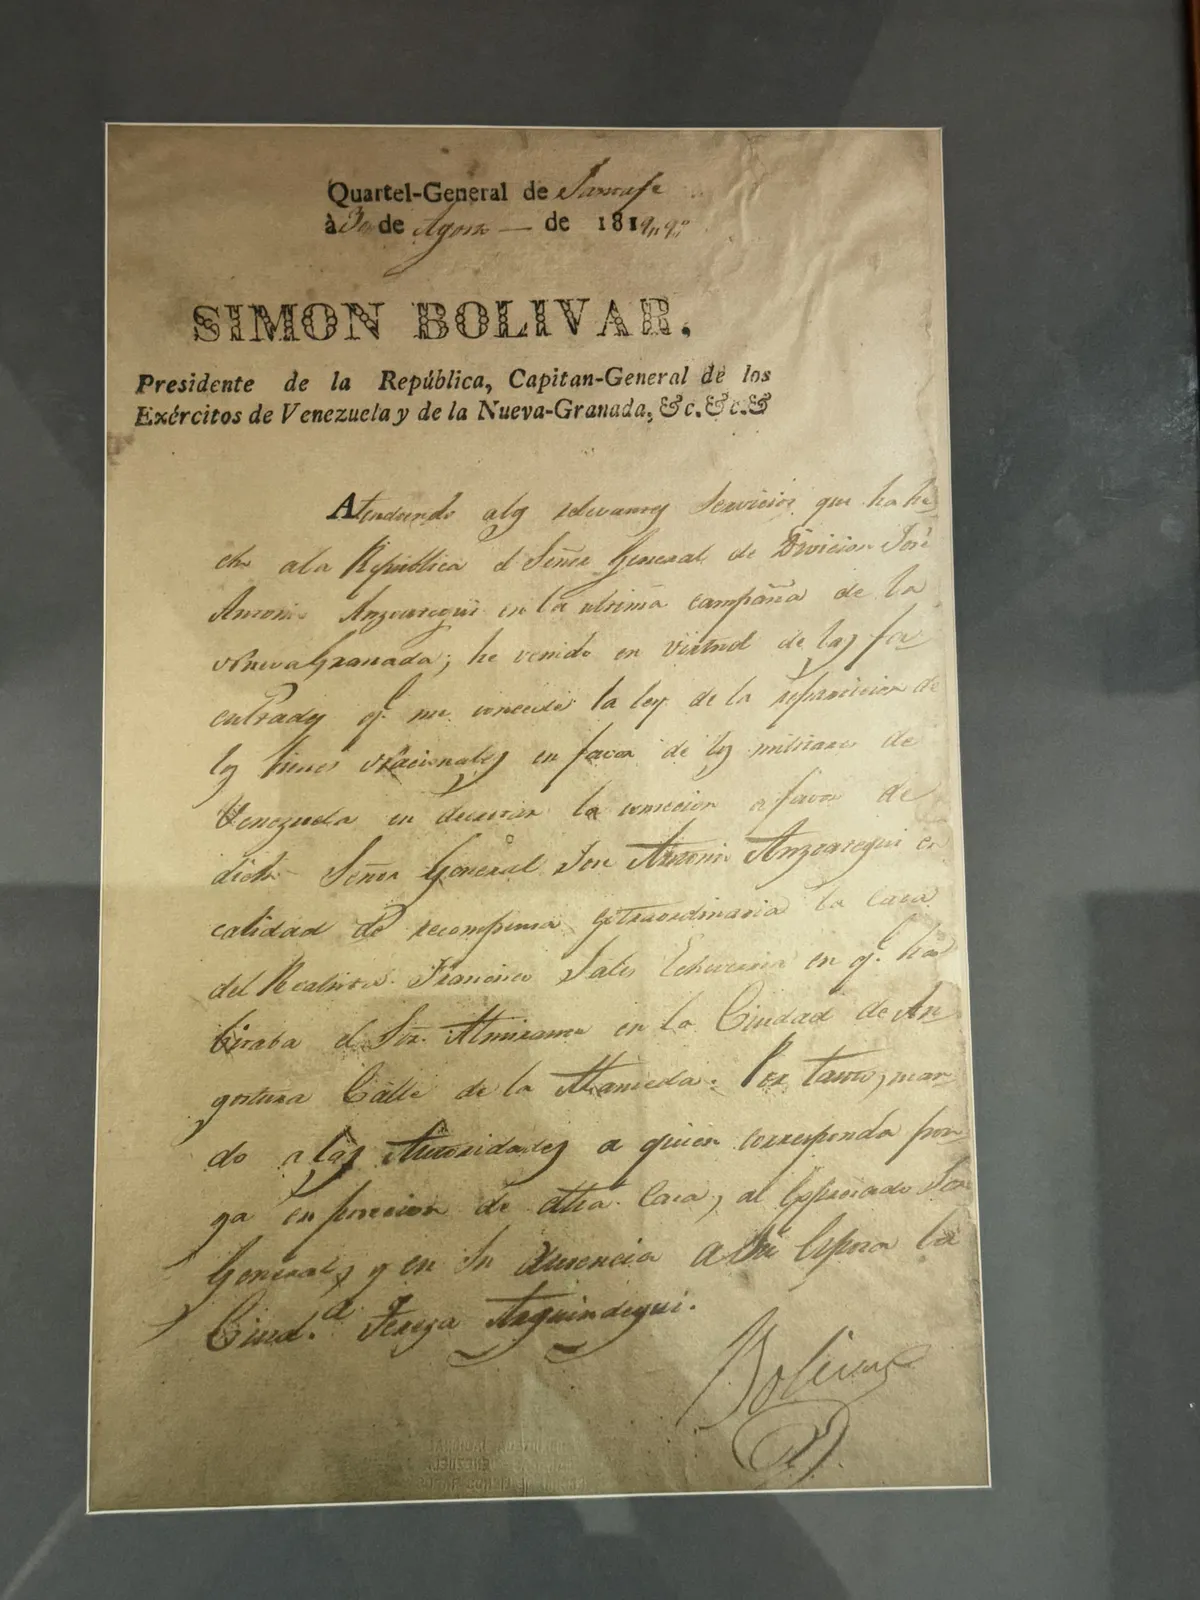 Quartel-General de Santafe
à 30 de Agosto — de 1819,, 9.º
SIMON BOLIVAR,
Presidente de la República, Capitan-General de los
Exércitos de Venezuela y de la Nueva-Granada, &c. &c. &
Atendiendo a los relevantes servicios que ha he
cho a la Republica el Señor General de Division José
Antonio Anzoategui en la ultima campaña de la
Nueva Granada; he venido en virtud de las fa-
cultades q.e me concede la ley de la reparticion de
los bienes Nacionales en favor de los militares de
Venezuela en decretar la concecion a favor de
dicho Señor General José Antonio Anzoategui en
calidad de recompensa extraordinaria la casa
del Realista Francisco Sales Echeverria en q.e ha
bitaba el Sor. Almirante en la Ciudad de An
gostura Calle de la Alameda. Por tanto, man
do a las Autoridades a quien corresponda pon
ga en posecion de dha. casa, al Expresado Sor
General, y en su ausencia a su Esposa la
Ciud.d Tereza Arguindegui.
Bolivar